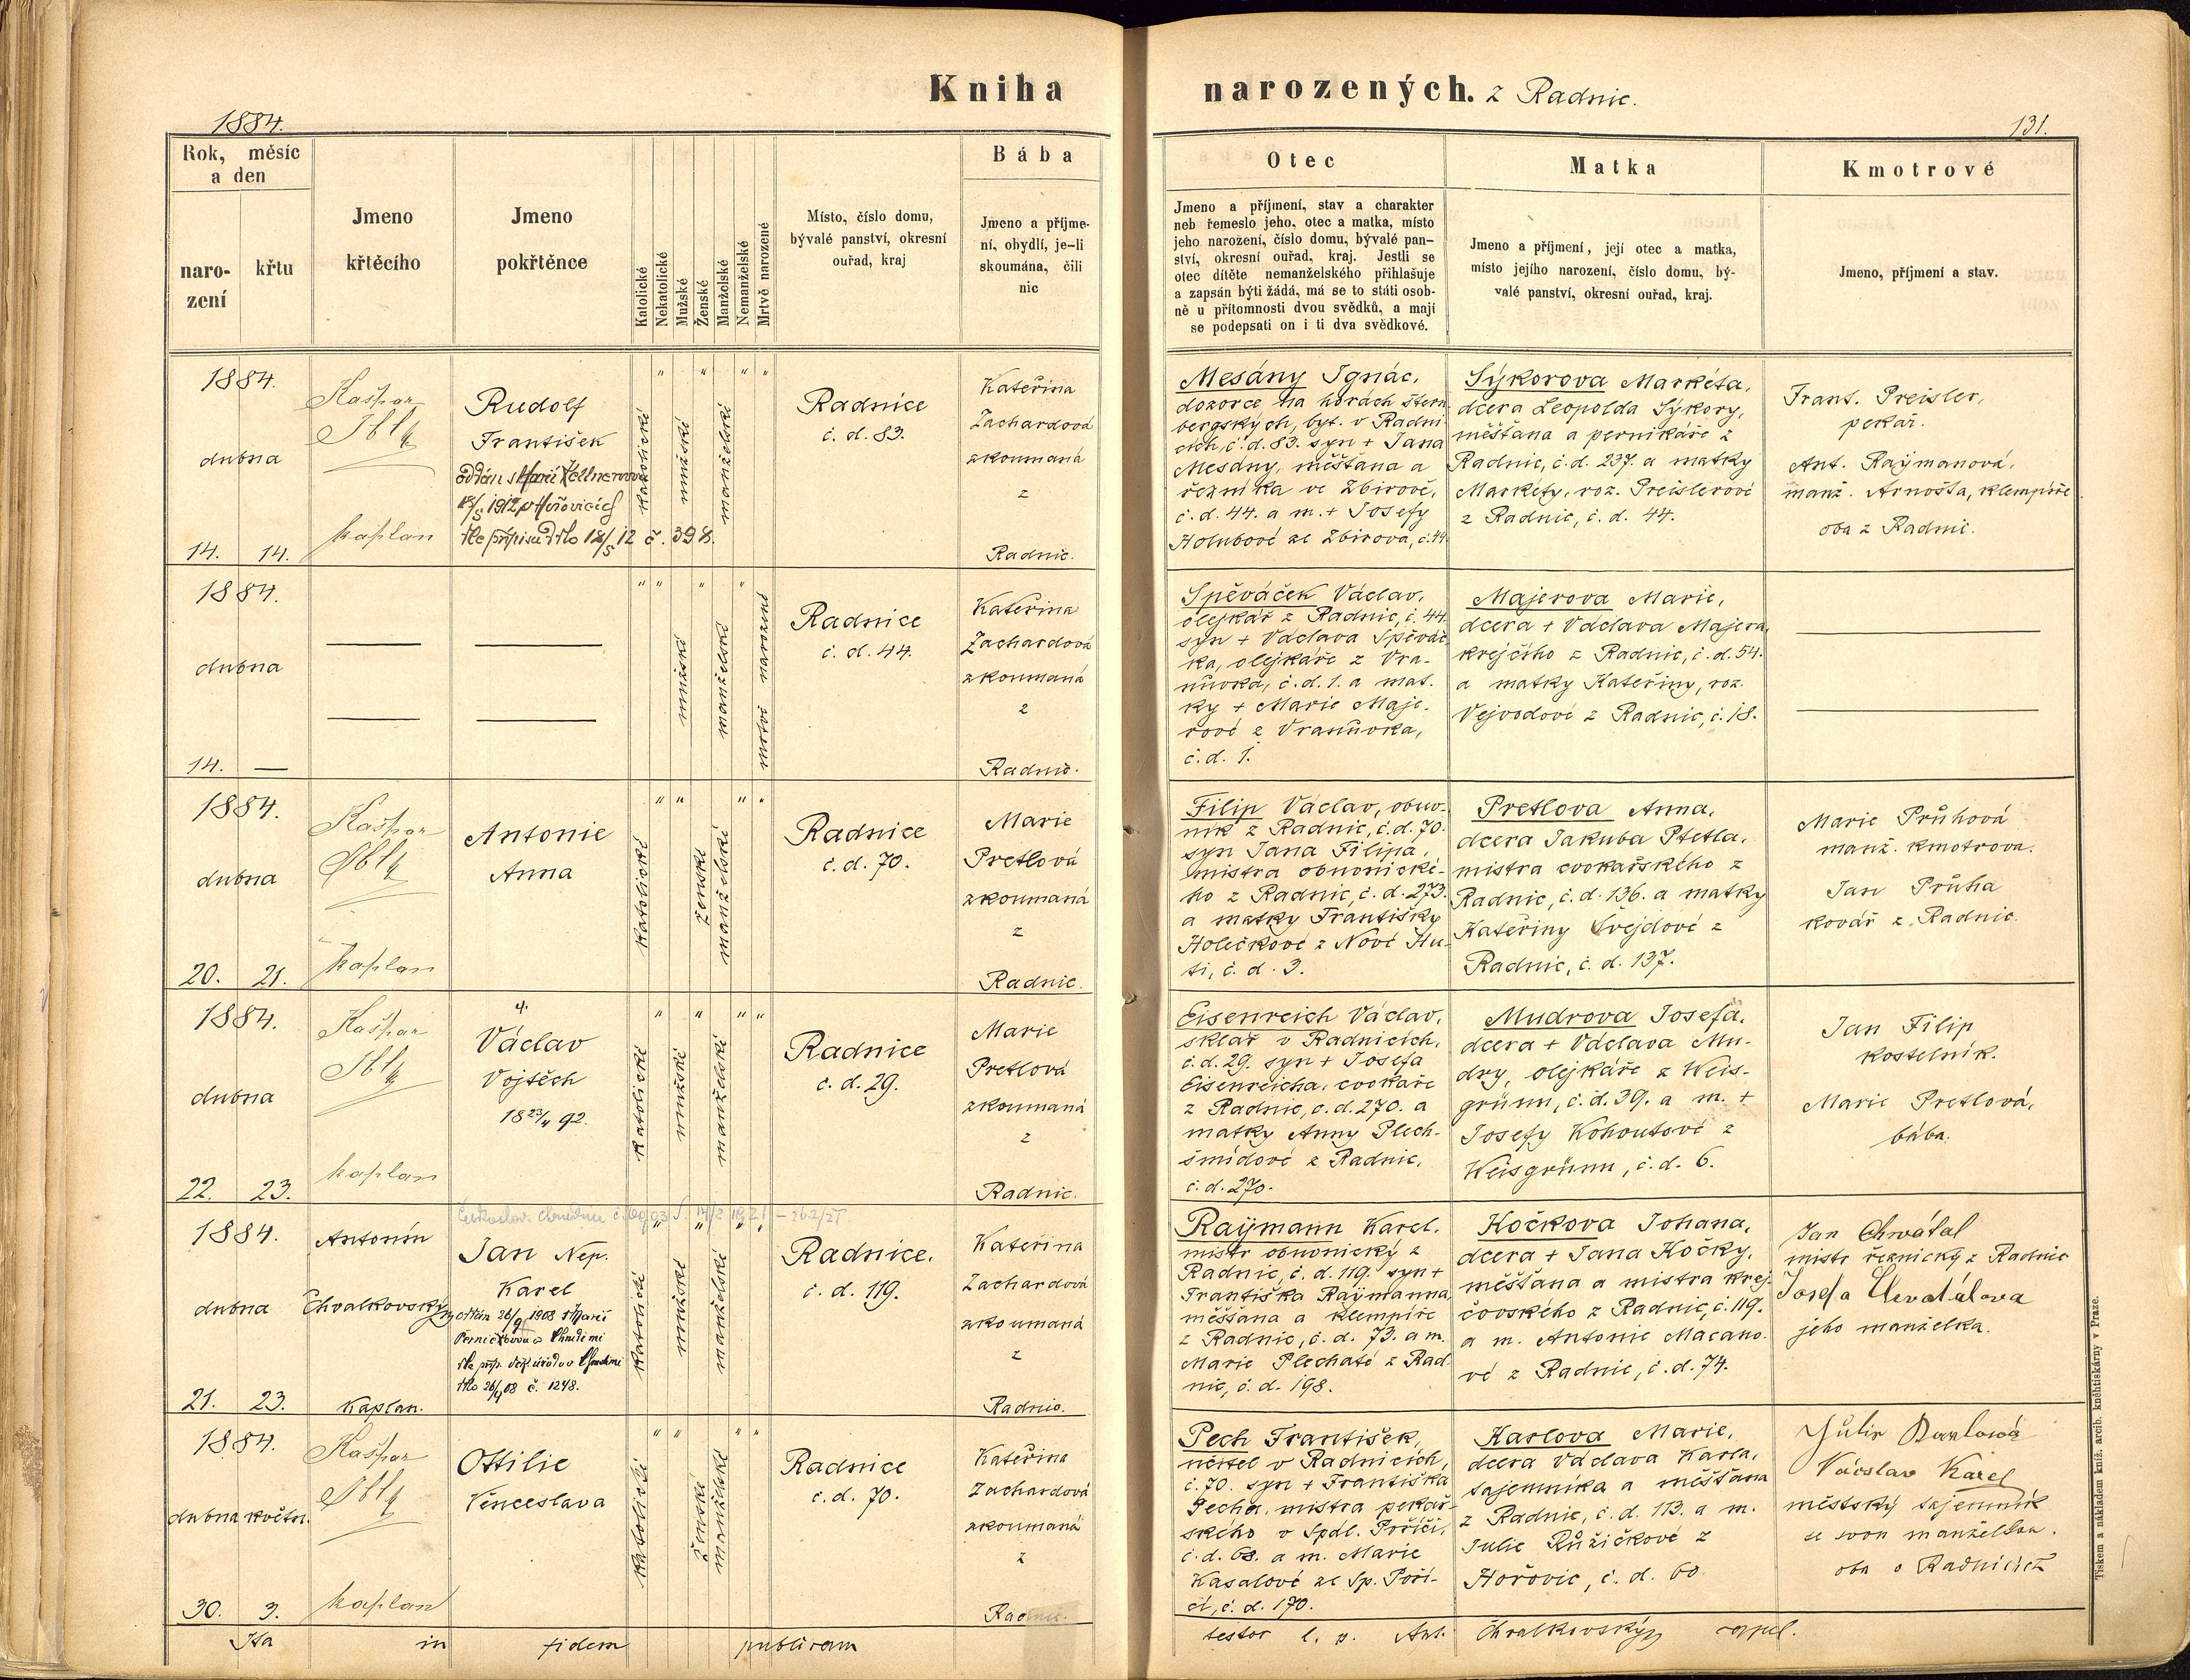 Kniha narozených. z Radnic.
1884.
131.
Rok, měsíc
a den
naro-
zení
křtu
Jmeno
křtěcího
Jmeno
pokřtěnce
Katolické
Nekatolické
Mužské
Ženské
Manželské
Nemanželské
Mrtvě narozené
Místo, číslo domu,
bývalé panství, okresní
ouřad, kraj
Bába
Jmeno a příjme-
ní, obydlí, je-li
skoumána, čili
nic
Otec
Jmeno a příjmení, stav a charakter
neb řemeslo jeho, otec a matka, místo
jeho narození, číslo domu, bývalé pan-
ství, okresní ouřad, kraj. Jestli se
otec dítěte nemanželského přihlašuje
a zapsán býti žádá, má se to státi osob-
ně u přítomnosti dvou svědků, a mají
se podepsati on i ti dva svědkové.
Matka
Jmeno a příjmení, její otec a matka,
místo jejího narození, číslo domu, bý-
valé panství, okresní ouřad, kraj.
Kmotrové
Jmeno, příjmení a stav.
1884.
dubna
14. 14.
Kašpar
kaplan
Rudolf
František
dle přípisu 18/5 12 č. 398.
katolické
mužské
manželské
Radnice
č. d. 83.
Kateřina
Zachardová
zkoumaná
z
Radnic.
Mesány Ignác,
dozorce na horách štern
bergských, byt. v Radni
cích, č. d. 83. syn + Jana
Mesány, měšťana a
řezníka ve Zbirově,
č. d. 44. a m. + Josefy
Holubové ze Zbirova, č. 44.
Sýkorova Markéta,
dcera Leopolda Sýkory,
měšťana a pernikáře z
Radnic, č. d. 237. a matky
Markéty, roz. Preislerové
z Radnic, č. d. 44.
Frant. Preisler,
pekař.
Ant. Raÿmanová,
manž. Arnošta, klempíře
oba z Radnic.
1884.
dubna
14. —
mužské
manželské
mrtvě narozené
Radnice
č. d. 44.
Kateřina
Zachardová
zkoumaná
z
Radnic.
Spěváček Václav,
olejkář z Radnic, č. 44.
syn + Václava Spěváč
ka, olejkáře z Vra-
nůvka, č. d. 1. a mat.
ky + Marie Maje.
rové z Vranůvka,
č. d. 1.
Majerova Marie,
dcera + Václava Majera,
krejčího z Radnic, č. d. 54.
a matky Kateřiny, roz.
Vejvodové z Radnic, č. 18.
1884.
dubna
20. 21.
Kašpar
kaplan
Antonie
Anna
katolické
ženské
manželské
Radnice
č. d. 70.
Marie
Pretlová
zkoumaná
z
Radnic.
Filip Václav, obuv-
ník z Radnic, č. d. 70.
syn Jana Filipa,
mistra obuvnické-
ho z Radnic, č. d. 273.
a matky Františky
Holečkové z Nové Hu-
ti, č. d. 3.
Pretlova Anna,
dcera Jakuba Pretla,
mistra cvokařského z
Radnic, č. d. 136. a matky
Kateřiny Švejdové z
Radnic, č. d. 137.
Marie Průhová
manž. kmotrova.
Jan Průha
kovář z Radnic.
1884.
dubna
22. 23.
Kašpar
kaplan
4.
Václav
Vojtěch
18 23/4 92.
katolické
mužské
manželské
Radnice
č. d. 29.
Marie
Pretlová
zkoumaná
z
Radnic.
Eisenreich Václav,
sklář v Radnicích,
č. d. 29. syn + Josefa
Eisenreicha, cvokaře
z Radnic, č. d. 270. a
matky Anny Plech-
šmídové z Radnic,
č. d. 270.
Mudrova Josefa,
dcera + Václava Mu-
dry, olejkáře z Weis-
grünn, č. d. 39. a m. +
Josefy Kohoutové z
Weisgrünn, č. d. 6.
Jan Filip
kostelník.
Marie Pretlová,
bába.
1884.
dubna
21. 23.
Antonín
Chvalkovský
kaplan.
Jan Nep.
Karel
oddán 26/9 1908 s Marií
č. 1248.
katolické
mužské
manželské
Radnice.
č. d. 119.
Kateřina
Zachardová
zkoumaná
z
Radnic.
Raÿmann Karel.
mistr obuvnický z
Radnic, č. d. 119. syn +
Františka Raÿmanna,
měšťana a klempíře
z Radnic, č. d. 73. a m.
Marie Plechaté z Rad
nic, č. d. 198.
Kočkova Johana,
dcera + Jana Kočky,
měšťana a mistra krej-
čovského z Radnic, č. 119.
a m. Antonie Macano
vé z Radnic, č. d. 74.
Jan Chwátal
mistr řeznický z Radnic
Josefa Chvatálova
jeho manželka.
1884.
dubna květn.
30. 3.
Kašpar
kaplan
Ottilie
Věnceslava
katolické
ženské
manželské
Radnice
č. d. 70.
Kateřina
Zachardová
zkoumaná
z
Radnic.
Pech František,
učitel v Radnicích,
č. 70. syn + Františka
Pecha, mistra pekař-
ského v Spdl. Poříčí,
č. d. 68. a m. Marie
Kasalové ze Sp. Poří-
čí, č. d. 170.
Karlova Marie,
dcera Václava Karla,
tajemníka a měšťana
z Radnic, č. d. 113. a m.
Julie Růžičkové z
Hořovic, č. d. 60.
Václav Karel
městský tajemník
se svou manželkou.
oba v Radnicích
Ita in fidem publicam
testor l. p. Ant. Chvalkovský, capel.
Tiskem a nákladem kníž. arcib. kněhtiskárny v Praze.